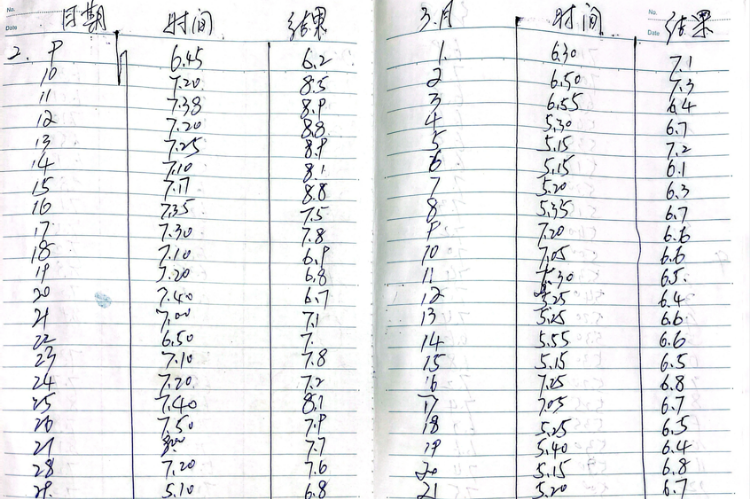 No.
Date
日期 时间 结果
2. 9 6.45 6.2
10 7.20 8.5
11 7.38 8.9
12 7.20 8.8
13 7.25 8.9
14 7.10 8.1
15 7.17 8.8
16 7.35 7.5
17 7.30 7.8
18 7.10 6.9
19 7.20 6.8
20 7.40 6.7
21 7.00 7.1
22 6.50 7.
23 7.10 7.8
24 7.20 7.2
25 7.40 8.1
26 7.50 7.9
27 7.7
28 7.20 7.6
29. 5.10 6.8
No.
Date
3.月 时间 结果
1. 6.30 7.1
2 6.50 7.3
3 6.55 6.4
4 5.30 6.7
5 5.15 7.2
6 5.15 6.1
7 5.20 6.3
8 5.35 6.7
9 7.20 6.6
10 7.05 6.6
11 .30 65.
12 5.25 6.4
13 5.25 6.6
14 5.55 6.6
15 5.15 6.5
16 7.25 6.8
17 7.05 6.7
18 5.25 6.5
19 5.40 6.4
20 5.15 6.8
21 5.20 6.7